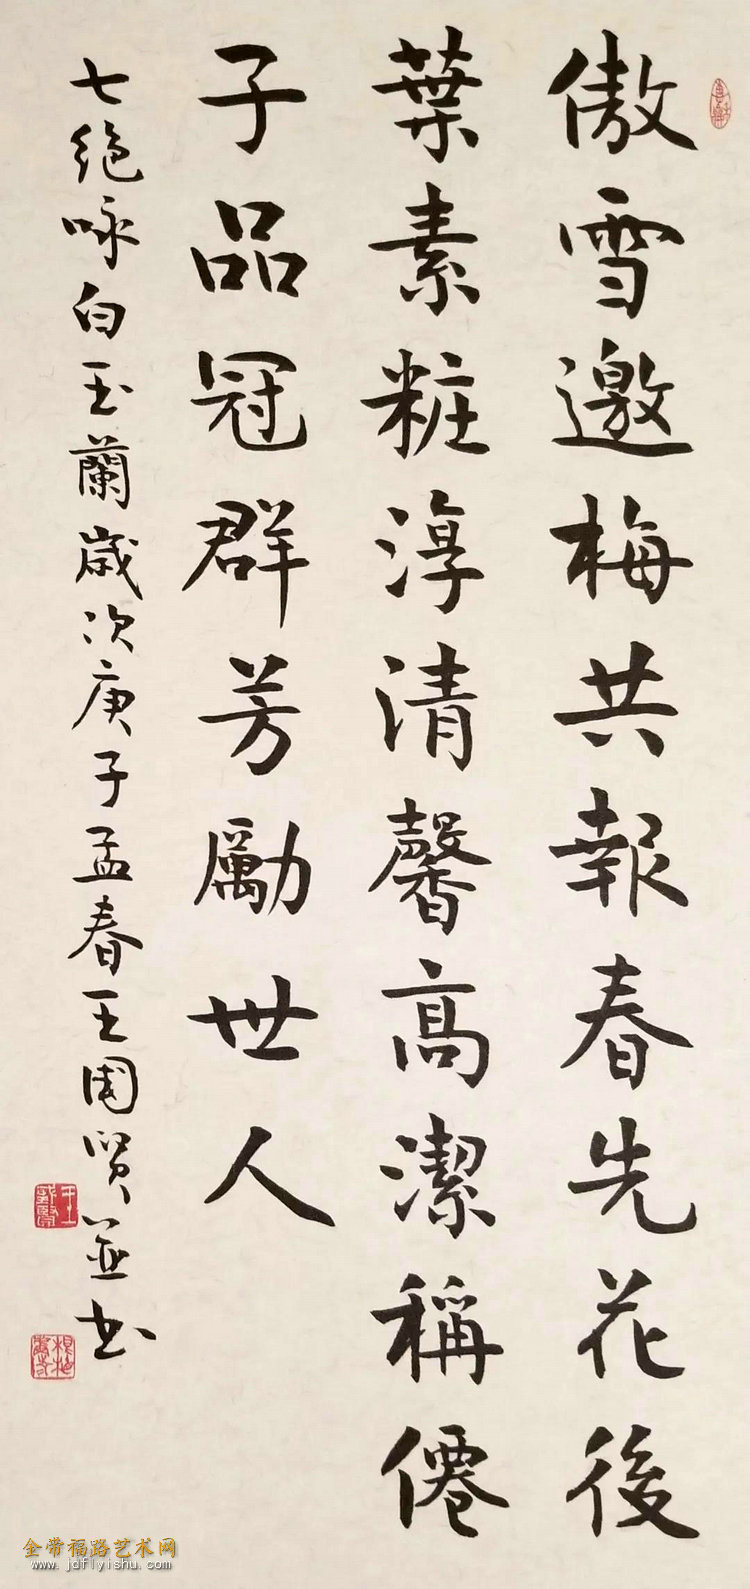 傲雪邀梅共報春先花後
葉素粧淳清馨高潔稱僊
子品冠群芳勵世人
七絕咏白玉蘭歲次庚子孟春王國賢並书
金带福路艺术网
www.jdflyishu.com